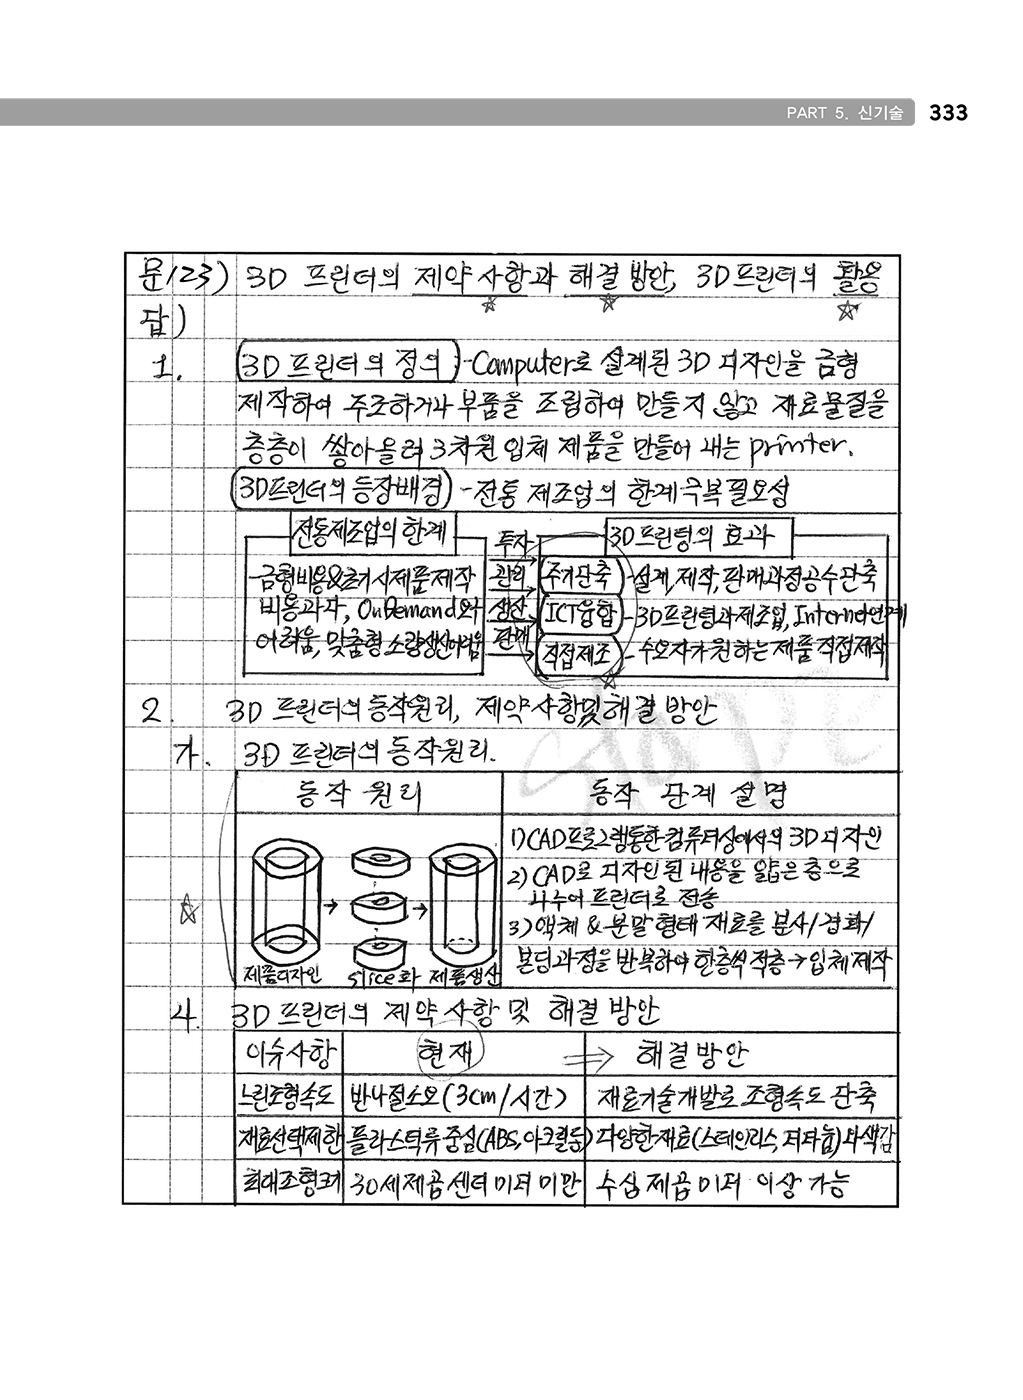 PART 5. 신기술 333
문123) 3D 프린터의 제약사항과 해결방안, 3D프린터의 활용
답)
1. 3D 프린터의 정의 - Computer로 설계된 3D 디자인을 금형
제작하여 주조하거나 부품을 조립하여 만들지 않고 재료물질을
층층이 쌓아올려 3차원 입체 제품을 만들어 내는 printer.
3D프린터의 등장배경 - 전통 제조업의 한계극복필요성
전통제조업의 한계
- 금형비용&초기시제품제작
비용과다, OnDemand와
어려움, 맞춤형 소량생산어려움
투자
관리
생산
판매
3D프린팅의 효과
주기단축 - 설계, 제작, 판매과정공수단축
ICT융합 - 3D프린팅과제조업, Internet연계
직접제조 - 수요자가 원하는 제품 직접제작
2. 3D 프린터의 동작원리, 제약사항및 해결 방안
가. 3D 프린터의 동작원리.
동작 원리
동작 단계 설명
제품디자인 slice화 제품생산
1) CAD프로그램통한 컴퓨터상에서의 3D 디자인
2) CAD로 디자인된 내용을 얇은 층으로
나누어 프린터로 전송
3) 액체 & 분말 형태 재료를 분사/경화/
본딩과정을 반복하여 한층씩 적층→입체제작
나. 3D 프린터의 제약사항 및 해결 방안
이슈사항 현재 ⇒ 해결방안
느린조형속도 반나절소요(3cm/시간) 재료기술개발로 조형속도 단축
재료선택제한 플라스틱류 중심(ABS, 아크릴등) 다양한재료(스테인리스, 티타늄)와색감
최대조형크기 30세제곱센터미터 미만 수십 제곱미터 이상 가능